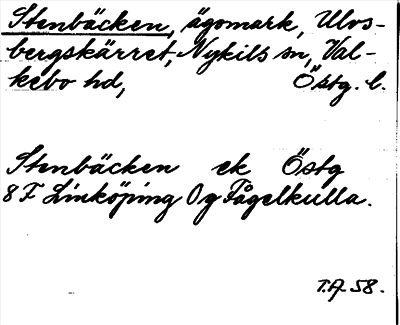 Stenbäcken, ägomark, Ulvs-
bergskärret, Nykils sn, Val-
kebo hd, Östg. l.
Stenbäcken ek Östg
8 F Linköping Og Fågelkulla.
T.A. 58.